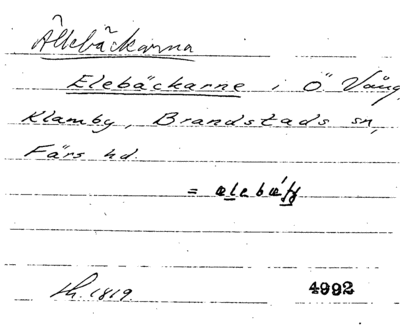 Ällebäckarna
Elebäckarne i Ö. Vång,
Klamby, Brandstads sn,
Färs hd.
=
Sk. 1819.
4992